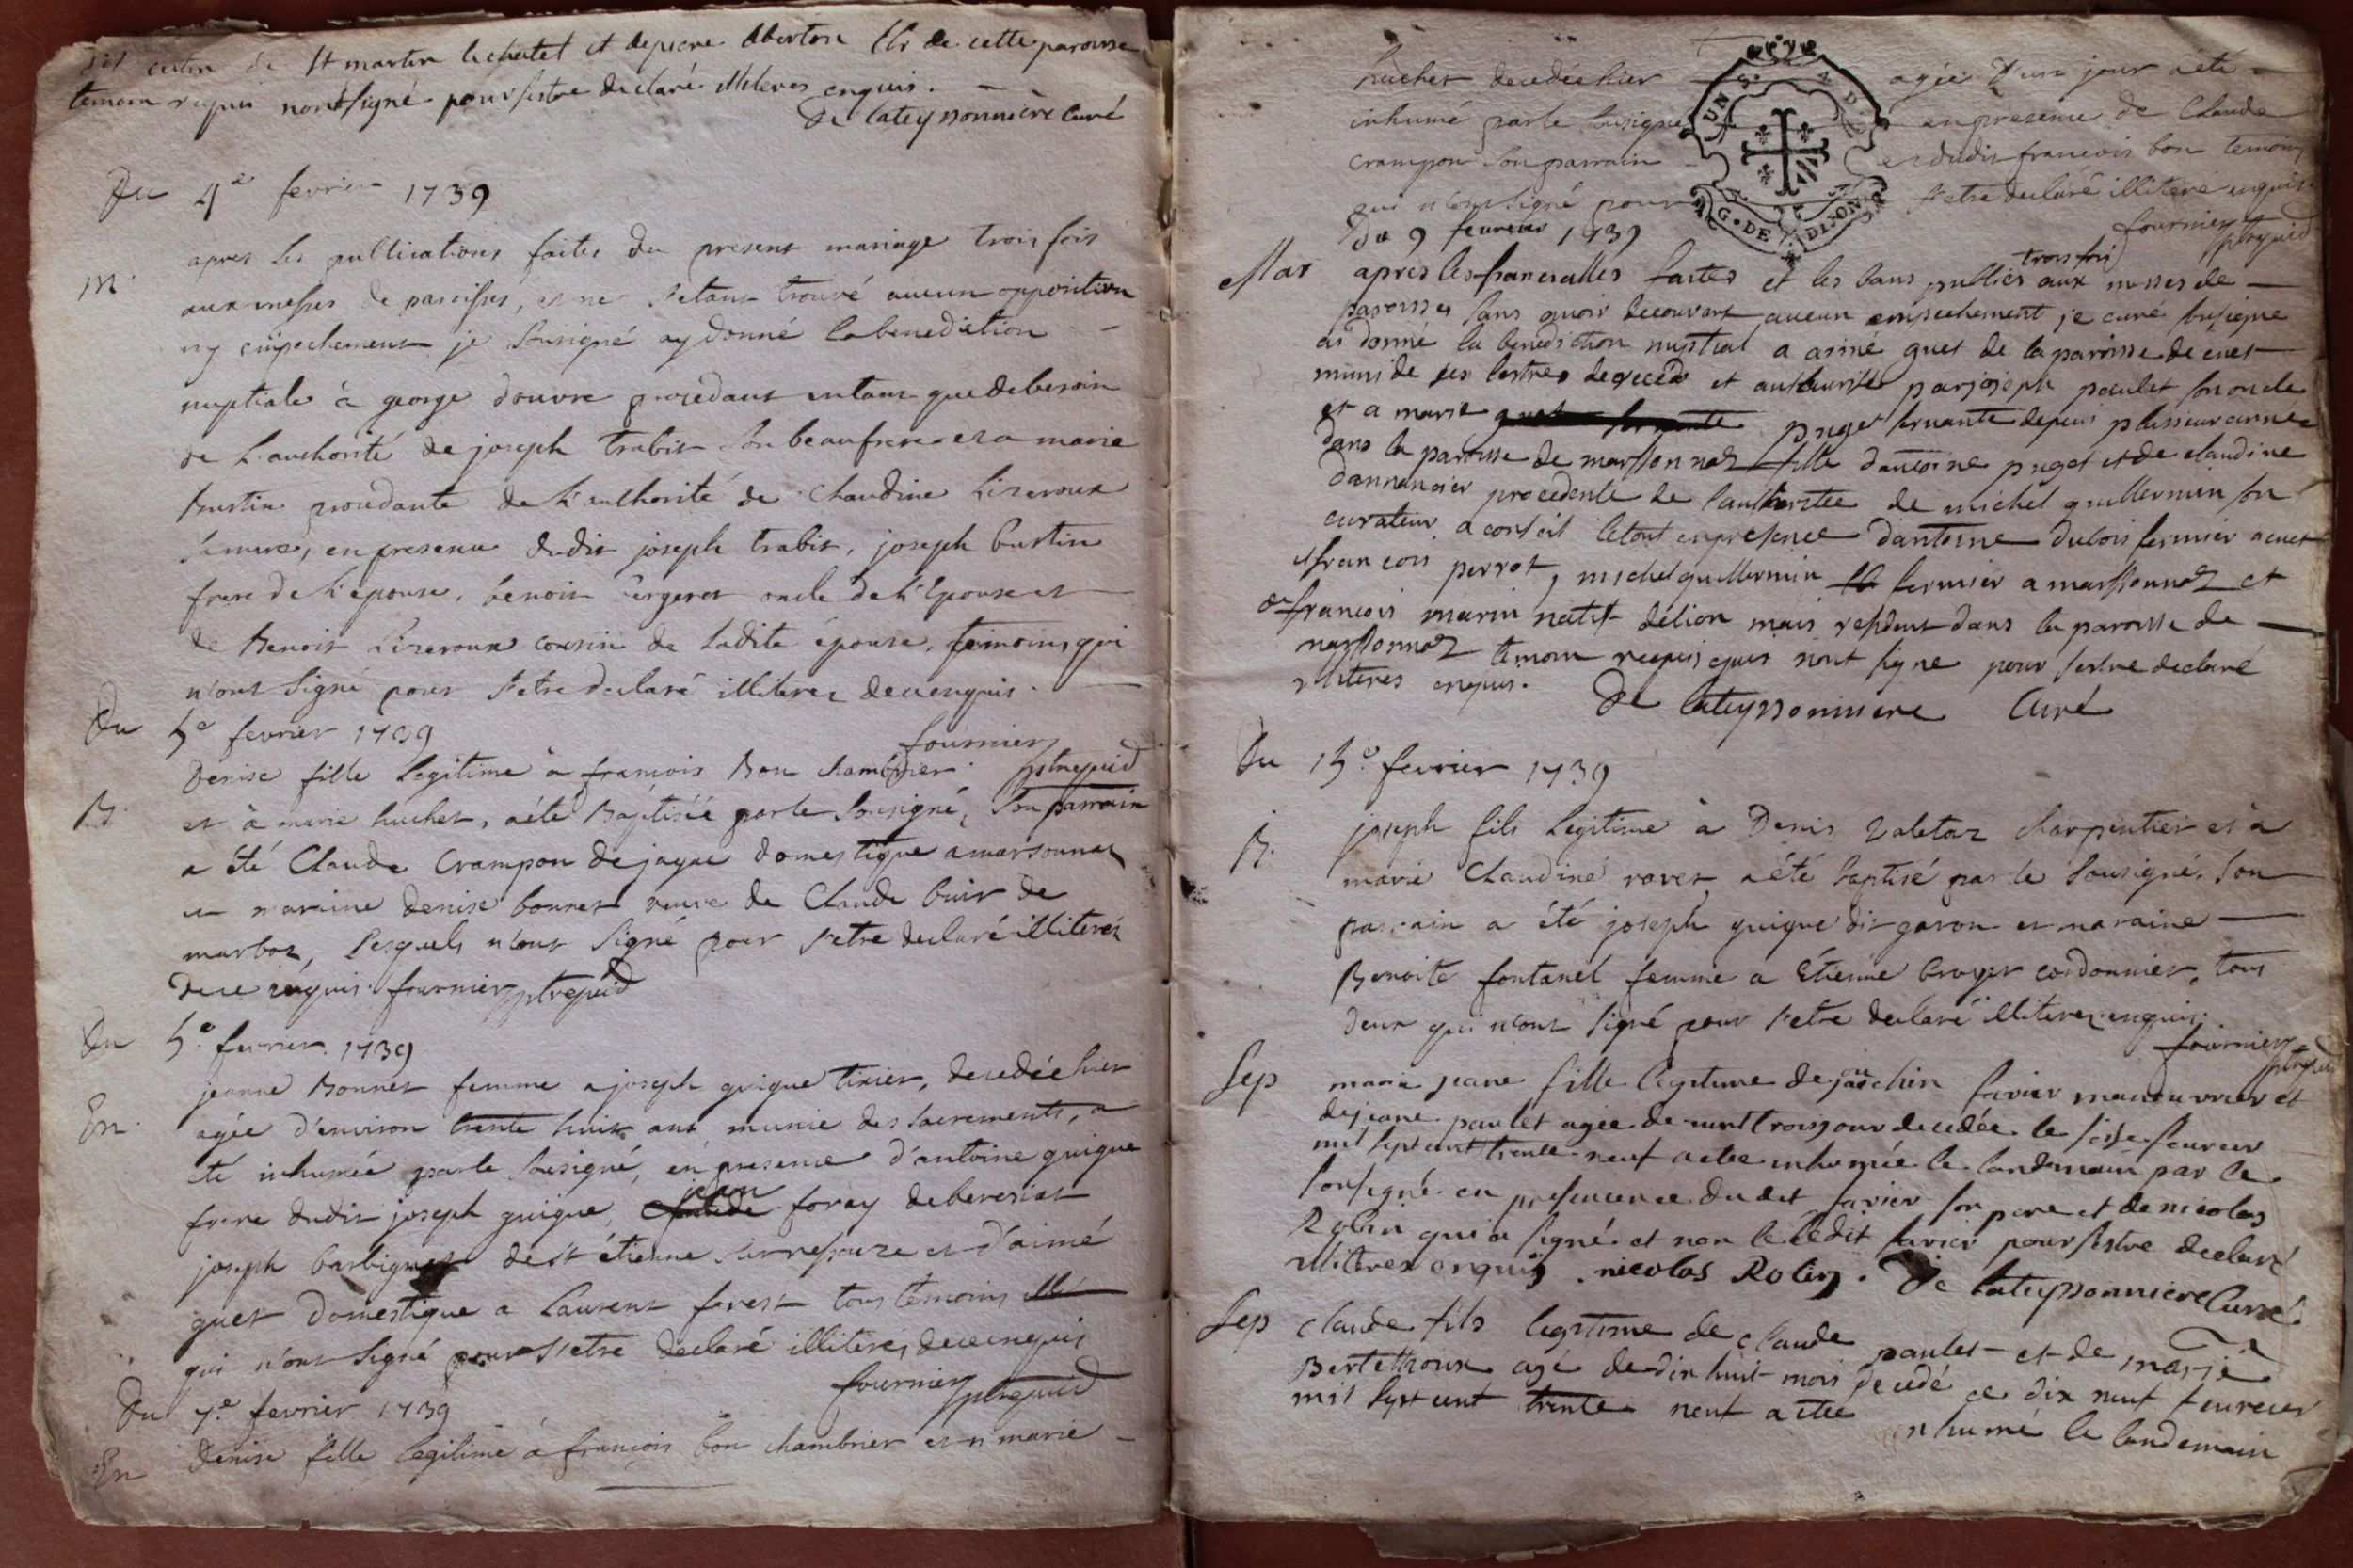 dit cotin de St martin lechatel et depierre Aberton Clr de cette paroisse
temoin requis nontsigné pour sestre declaré illiteres enquis.
De lateyssonniere Curé
Du 4e fevrier 1739
M. apres les publications faites du present mariage trois fois
aux messes de paroisses, et ne s'etant trouvé aucun opposition
ny empechement je sousigné ay donné la benediction
nuptiale à george douvre procedant entant que de besoin
de l'authorité de joseph trabit son beaufrere et a marie
bustin procedante de l'authorité de Claudine Lizeroux
sa mere, en presence dudit joseph trabit, joseph bustin
frere de l'epouse, benoit oncle de l'epouse et
de Benoit Lizeroux cousin de ladite épouse, temoins qui
n'ont signé pour s'etre declaré illiterez de ce enquis.
fournier ptre
Du 5e fevrier 1739
Denise fille legitime à francois Bon chambrier
B. et à marie huchet, a été Baptisée par le sousigné, son parrain
a été Claude Crampon de jayac domestique a marsonnaz
et maraine denise bonnet veuve de Claude buir de
marboz, lesquels n'ont signé pour s'etre declaré illiterés
de ce enquis. fournier ptre
Du 5e fevrier 1739
jeanne Bonnet femme a joseph guigue tixier, decedée hier
En. agée d'environ trente huit ans munie des sacrements, a
eté inhumée par le sousigné, en presence d'antoine guigue
frere dudit joseph guigue, jean foray de bereziat
joseph barbignet de st étienne sur ressouze et d'aimé
guet domestique a Laurent forest tous temoins
qui n'ont signé pour s'etre declaré illiteres de ce enquis
fournier ptre
Du 7e fevrier 1739
En Denise fille legitime á françois bon chambrier et a marie
huchet decedée hier agée d'un jour a eté
inhumé par le sousigné en presence de Claude
crampon son parrain et dudit francois bon temoins
qui n'ont signé pour s'etre declaré illiteré enquis
fournier ptre
Du 9 feuvrier 1739
Mar apres les fiancailles faites et les bans publies trois fois aux messes de
paroisses sans avoir decouvert aucun empechement je curé sousigné
ai donné la benediction nuptial a aimé guet de la paroisse de cuet
muni de ses lettres de recedo et authorisé par joseph paulet son oncle
et a marie puget servante depuis plusieur année
dans la paroisse de marsonnaz fille dantoine puget et de claudine
procedente de lauthoritée de michel guillermin son
curateur a conseil letout en presence dantoine dubois fermier a cuet
et francois perrot, michel guillermin fermier a marsonnaz et
de francois marin natif délion mais residant dans la paroisse de
marsonnaz temoin requis qui nont signe pour sestre declaré
illiteres enquis. De lateyssonniere Curé
Du 15e fevrier 1739
B. joseph fils legitime à Denis Valetaz charpentier et à
marie Claudine ravet, a été baptisé par le sousigné. Son
parrain a été joseph guigue dit garon et maraine
Benoite fontanel femme a Etienne broyer cordonnier, tous
deux qui n'ont signé pour s'etre declaré illiterez enquis.
fournier ptre
Sep marie jeane fille legitime de joachin farier manouvrier et
de jeane paulet agée de vint trois jour decedée le seise feuvrier
mil sept cent trente neuf a etée inhumée le landemain par le
sousigné en presence dudit farier son pere et de nicolas
Robin qui a signé et non le ledit farier pour sestre declaré
illiteres enquis. nicolas Robin. De lateyssonniere Curé
Sep claude fils legitime de claude paulet et de marie
Berthoux agé de dix huit mois decedé ce dix neuf feuvrier
mil sept cent trente neuf a etée inhumé le landemain